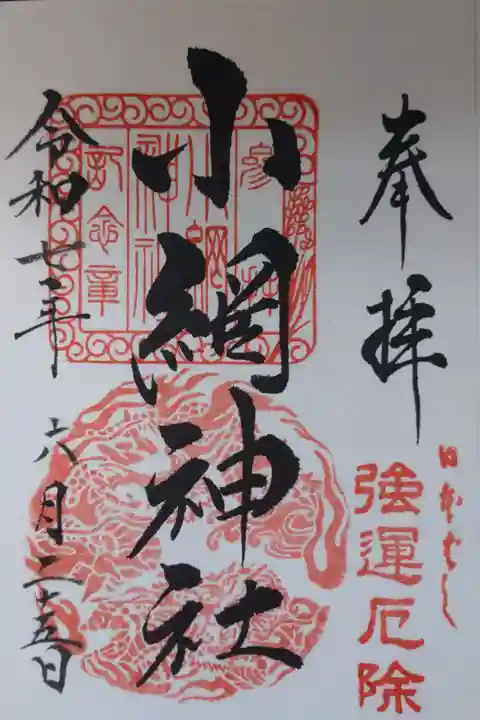 奉拝
日本ばし
強運厄除
小網神社
参拝
小網
神社
記念章
令和七年 六月二十五日